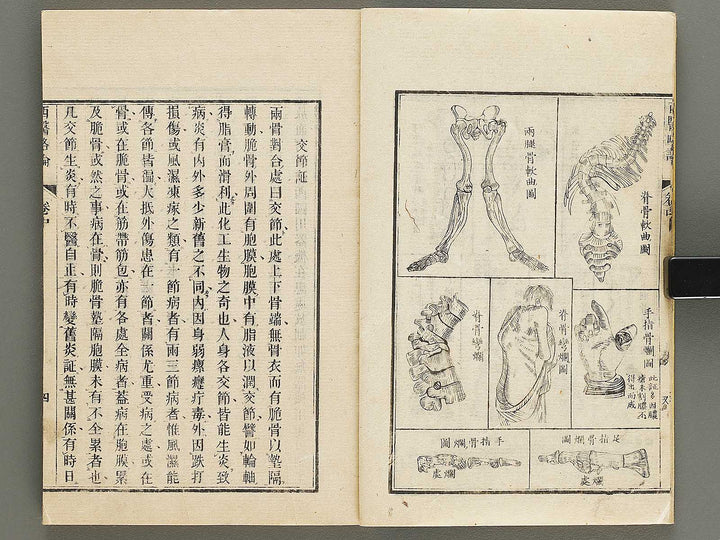 西醫略論
卷中
脊骨軟曲圖
兩腿骨軟曲圖
手指骨爛圖
脊骨彎爛圖
脊骨彎爛
足指骨爛圖
爛處
手指骨爛圖
爛處
交節証
兩骨對合處曰交節、此處上下骨端無骨衣而有脆骨以墊隔
轉動、脆骨外周圍有胞膜、胞膜中有脂液以潤交節、譬如輪軸
得脂膏而滑利、此化工生物之奇也、人身各交節皆能生炎致
病、炎有內外多少新舊之不同、內因身弱瘰癧疔毒、外因跌打
損傷或風濕凍瘃之類、有一節病者、有兩三節病者、惟風濕能
傳各節皆濕、大抵外傷患在一節者關係尤重、受病之處、或在
骨、或在脆骨、或在筋帶筋包、亦有各處全病者、蓋病在胞膜、累
及脆骨、或然之事、病在骨、則脆骨墊隔胞膜未有不全累者也、
凡交節生炎、有時不醫自止、有時變舊炎証、無甚關係、有時日
西醫略論
卷中
四